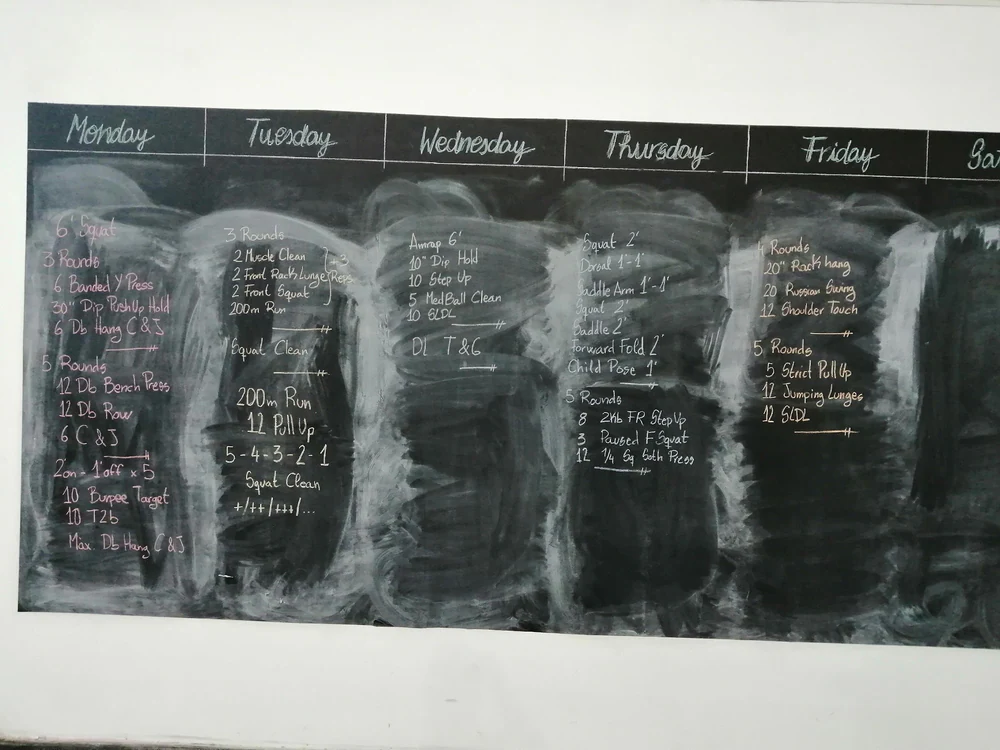 Monday
6' Squat
3 Rounds
6 Banded Y Press
30" Dip PushUp Hold
6 Db Hang C & J
5 Rounds
12 Db Bench Press
12 Db Row
6 C & J
2'on - 1'off x 5
10 Burpee Target
10 T2b
Max Db Hang C & J
Tuesday
3 Rounds
2 Muscle Clean
2 Front Rack Lunge
2 Front Squat
3
Reps
200m Run
Squat Clean
200m Run
12 Pull Up
5-4-3-2-1
Squat Clean
+/++/+++/...
Wednesday
Amrap 6'
10" Dip Hold
10 Step Up
5 MedBall Clean
10 SLDL
DL T & G
Thursday
Squat 2'
Dorsal 1'-1'
Saddle Arm 1'-1'
Squat 2'
Saddle 2'
Forward Fold 2'
Child Pose 1'
5 Rounds
8 2Kb FR StepUp
3 Paused F Squat
12 1/4 Sq Soth Press
Friday
4 Rounds
20" Rack hang
20 Russian Swing
12 Shoulder Touch
5 Rounds
5 Strict PullUp
12 Jumping Lunges
12 SLDL